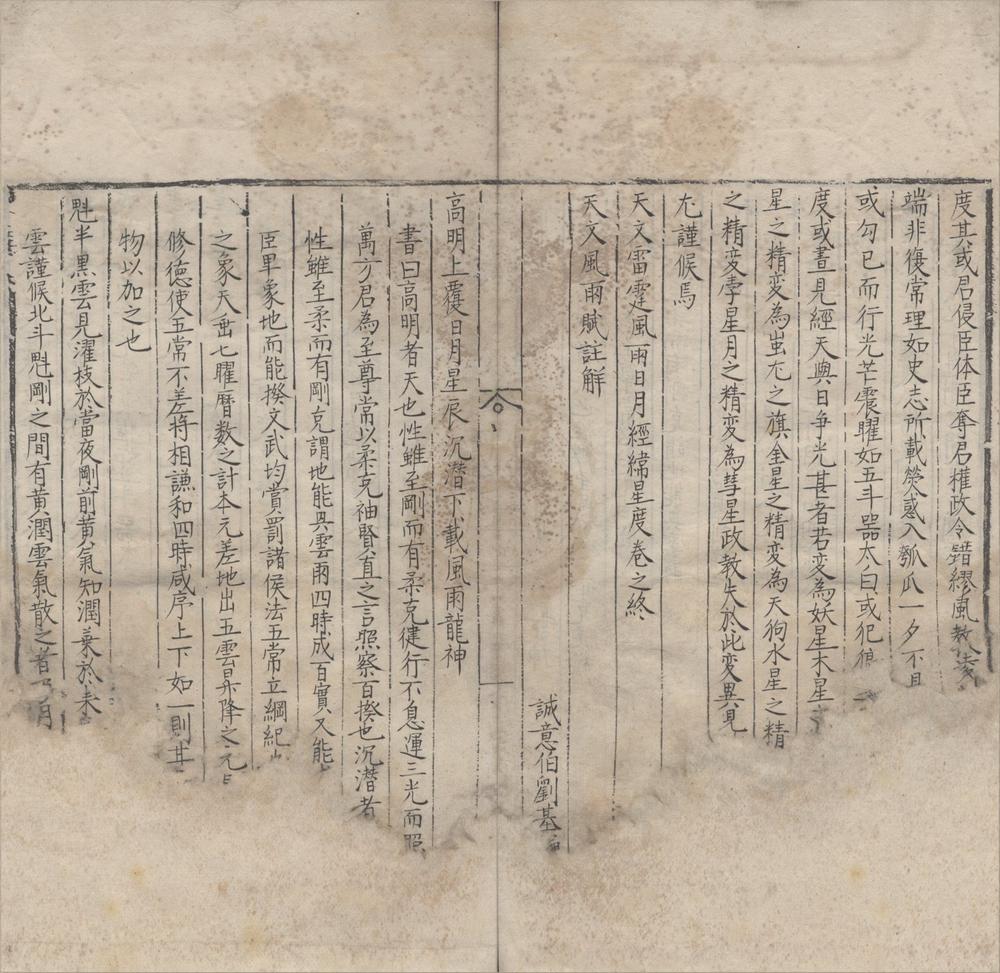 度其或君侵臣体臣奪君權政令錯繆風教凌
端非復常理如史志所載熒惑入瓠瓜一夕不見
或勾已而行光芒震耀如五斗器太白或犯狼
度或晝見經天與日争光甚者若変為妖星木星
星之精変為蚩尤之旗金星之精変為天狗水星之精
之精変孛星月之精変為彗星政教失於此変異見
尤謹候焉
天文雷霆風雨日月經緯星度卷之終
天文風雨賦註觧
誠意伯劉基
高明上覆日月星辰沉潜下載風雨龍神
書曰高明者天也性雖至剛而有柔克健行不息運三光而照
萬方君為至尊常以柔克袖賢真之言照察百揆也沉潜者
性雖至柔而有剛克謂地能興雲雨四時成百實又能
臣卑象地而能揆文武均賞罰諸侯法五常立綱紀
之象天垂七曜曆数之計本元差地出五雲昇降之元
修徳使五常不差将相謙和四時咸序上下如一則
物以加之也
魁半黒雲見濯枝於當夜剛前黄氣知潤葉於未
雲謹候北斗魁剛之間有黄潤雲氣散之者 月